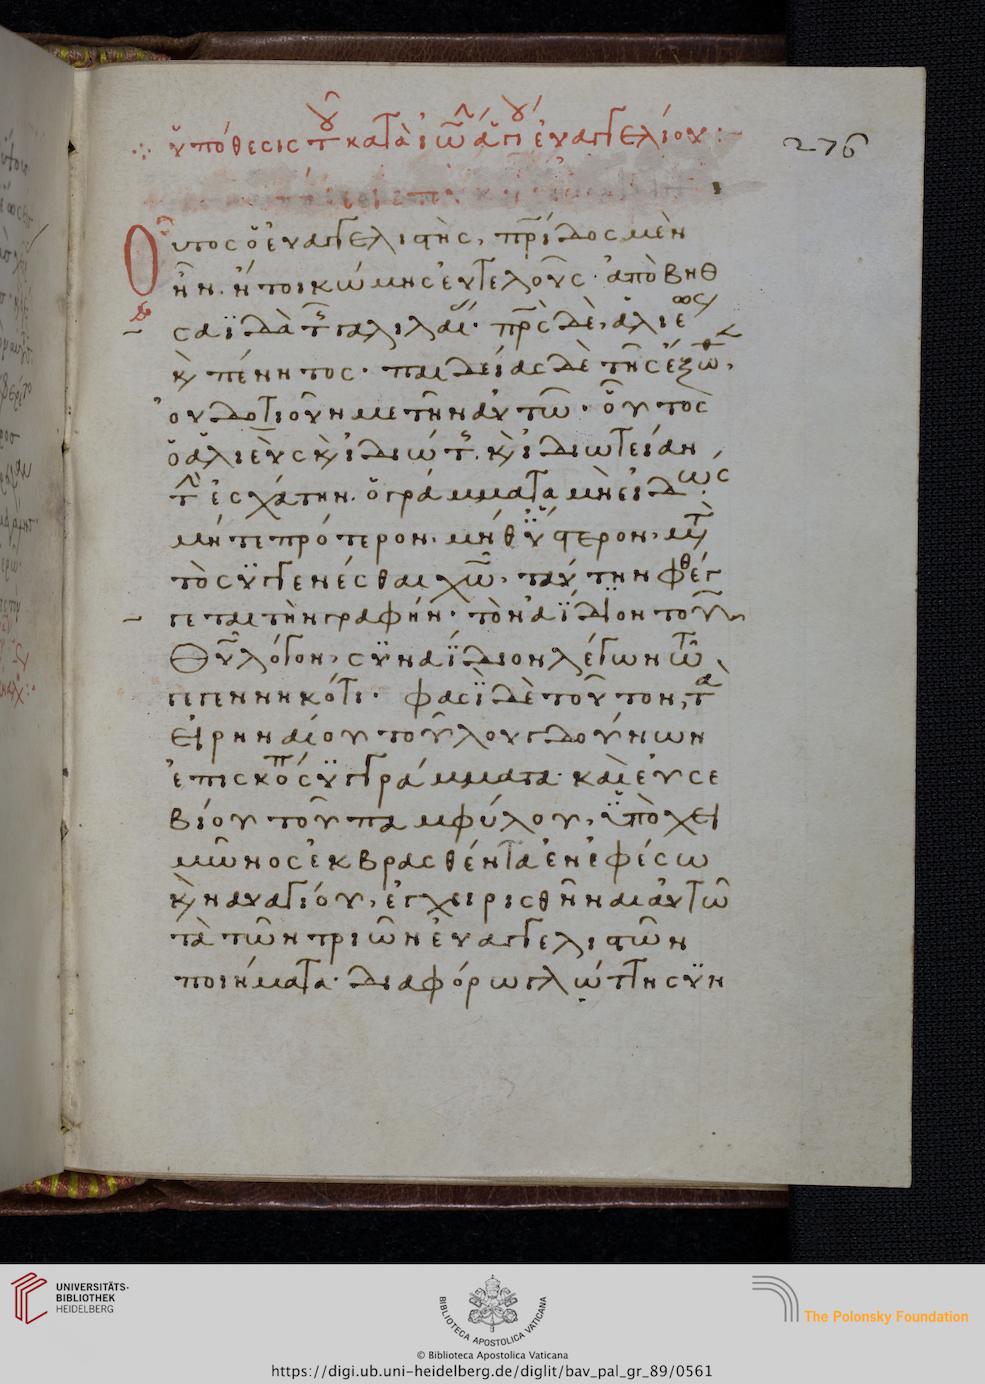 ὑπόθεσις τοῦ κατὰ ἰωάννην ἁγίου εὐαγγελίου:
276
Οὗτος ὁ εὐαγγελιστὴς, πατρίδος μὲν
ἦν. ἤτοι κώμης εὐτελοῦς· ἀπὸ βηθ
σαϊδὰ τῆς γαλιλαίας· πατρὸς δὲ, ἁλιέως
καὶ πένητος· παιδείας δὲ τῆς ἔξωθεν,
οὐδοτιοῦν μετῆν αὐτῶ· οὗτος
ὁ ἁλιεὺς καὶ ἰδιώτης. καὶ ἰδιωτείαν
τὴν ἐσχάτην. ὁ γράμματα μὴ εἰδὼς
μήτε πρότερον· μήθ ὕστερον· μετὰ
τὸ συγγενέσθαι χριστῶ, ταύτην φθέγ
γεται τὴν γραφήν· τὸν ἀΐδιον τοῦ
Θεοῦ λόγον, συναΐδιον λέγων τῶ
γεγεννηκότι· φασὶ δὲ τοῦτον, τὰ
Εἰρηναίου τοῦ λουγδούνων
ἐπισκόπου συγγράμματα· καὶ εὐσε
βίου τοῦ παμφύλου, ὑπὸ χει
μῶνος ἐκβρασθέντα ἐν ἐφέσω
καὶ ναυαγίου, ἐγχειρισθῆναι αὐτῶ
τὰ τῶν τριῶν εὐαγγελιστῶν
ποιήματα· διαφόρω γλώττη συν
UNIVERSITÄTS-
BIBLIOTHEK
HEIDELBERG
BIBLIOTECA APOSTOLICA VATICANA
The Polonsky Foundation
© Biblioteca Apostolica Vaticana
https://digi.ub.uni-heidelberg.de/diglit/bav_pal_gr_89/0561